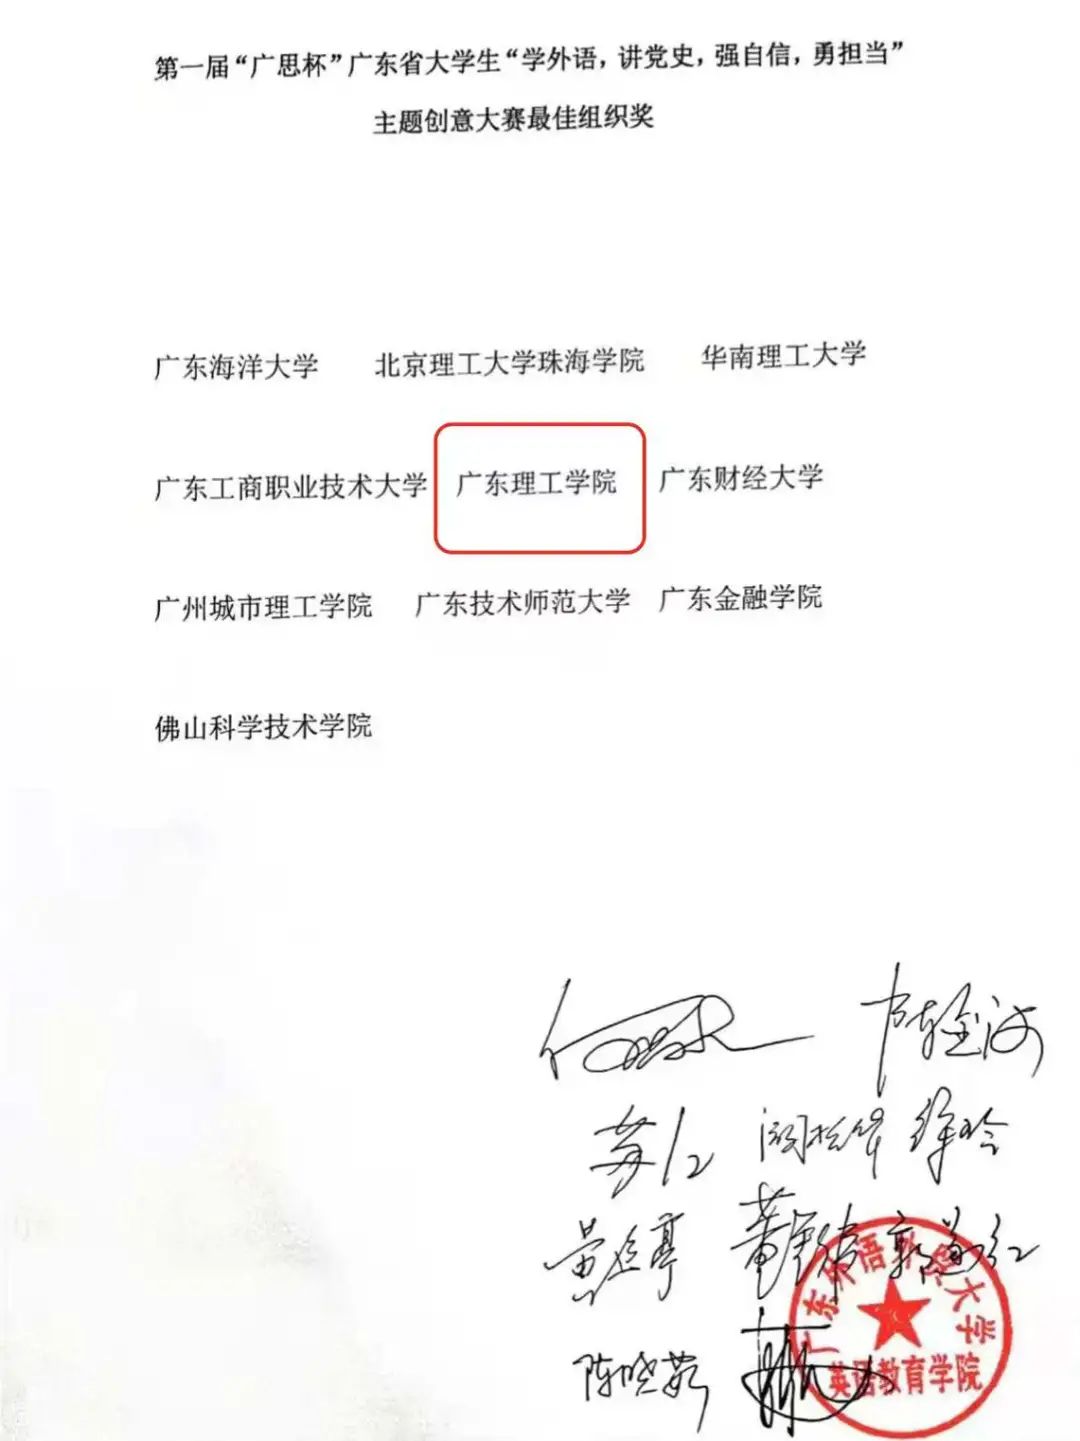 第一届“广思杯”广东省大学生“学外语，讲党史，强自信，勇担当”
主题创意大赛最佳组织奖
广东海洋大学 北京理工大学珠海学院 华南理工大学
广东工商职业技术大学 广东理工学院 广东财经大学
广州城市理工学院 广东技术师范大学 广东金融学院
佛山科学技术学院
徐玲
陈晓茹
广东外语外贸大学
英语教育学院